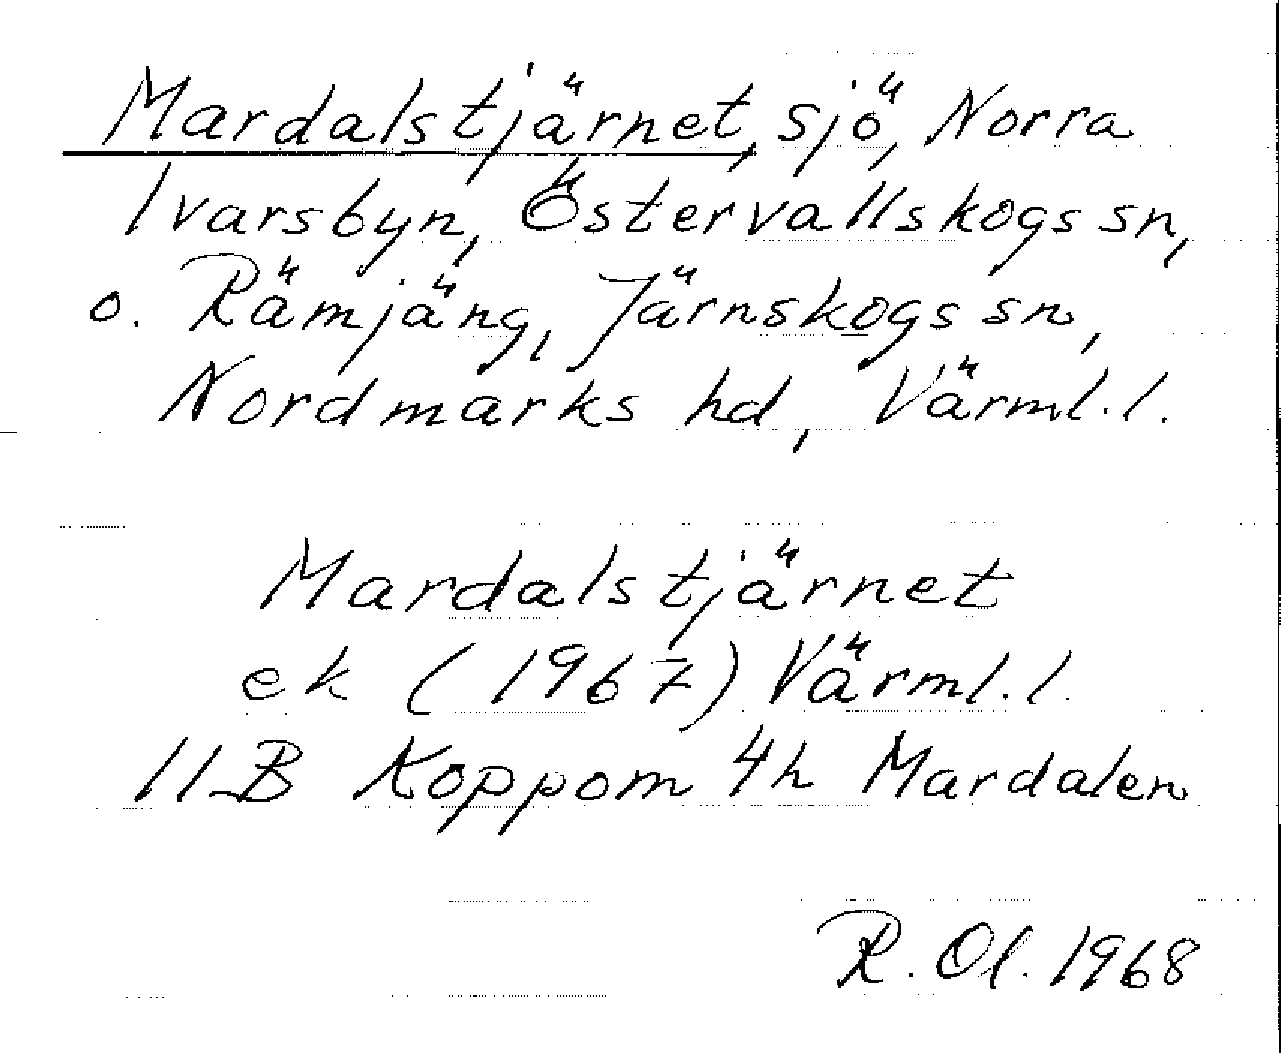 Mardalstjärnet, sjö, Norra
Ivarsbyn, Östervallskogs sn,
o. Rämjäng, Järnskogs sn,
Nordmarks hd, Värml. l.
Mardalstjärnet
ek (1967) Värml. l.
11B Koppom 4h Mardalen
R. Ol. 1968